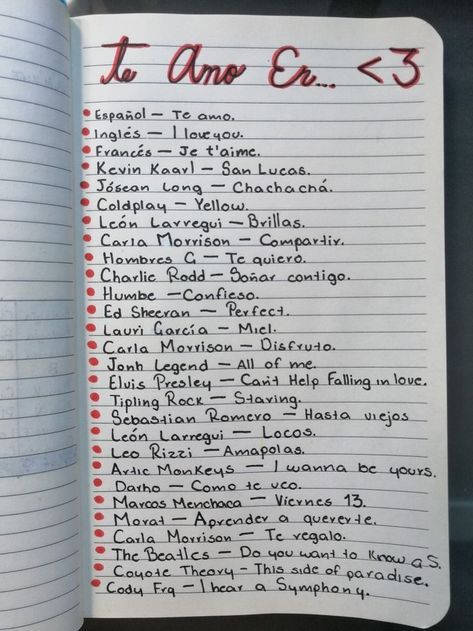 Te Amo En... <3
Español — Te amo.
Inglés — I love you.
Francés — Je t'aime.
Kevin Kaarl — San Lucas.
Jósean Long — Chachachá.
Coldplay — Yellow.
León Larregui — Brillas.
Carla Morrison — Compartir.
Hombres G — Te quiero.
Charlie Rodd — Soñar contigo.
Humbe — Confieso.
Ed Sheeran — Perfect.
Lauri García — Miel.
Carla Morrison — Disfruto.
Jonh Legend — All of me.
Elvis Presley — Can't Help Falling in love.
Tipling Rock — Staving.
Sebastian Romero — Hasta viejos
León Larregui — Locos.
Leo Rizzi — Amapolas.
Artic Monkeys — I wanna be yours.
Darho — Como te veo.
Marcos Menchaca — Viernes 13.
Morat — Aprender a quererte.
Carla Morrison — Te regalo.
The Beatles — Do you want to Know a S.
Coyote Theory - This side of paradise.
Cody Frq — I hear a Symphony.